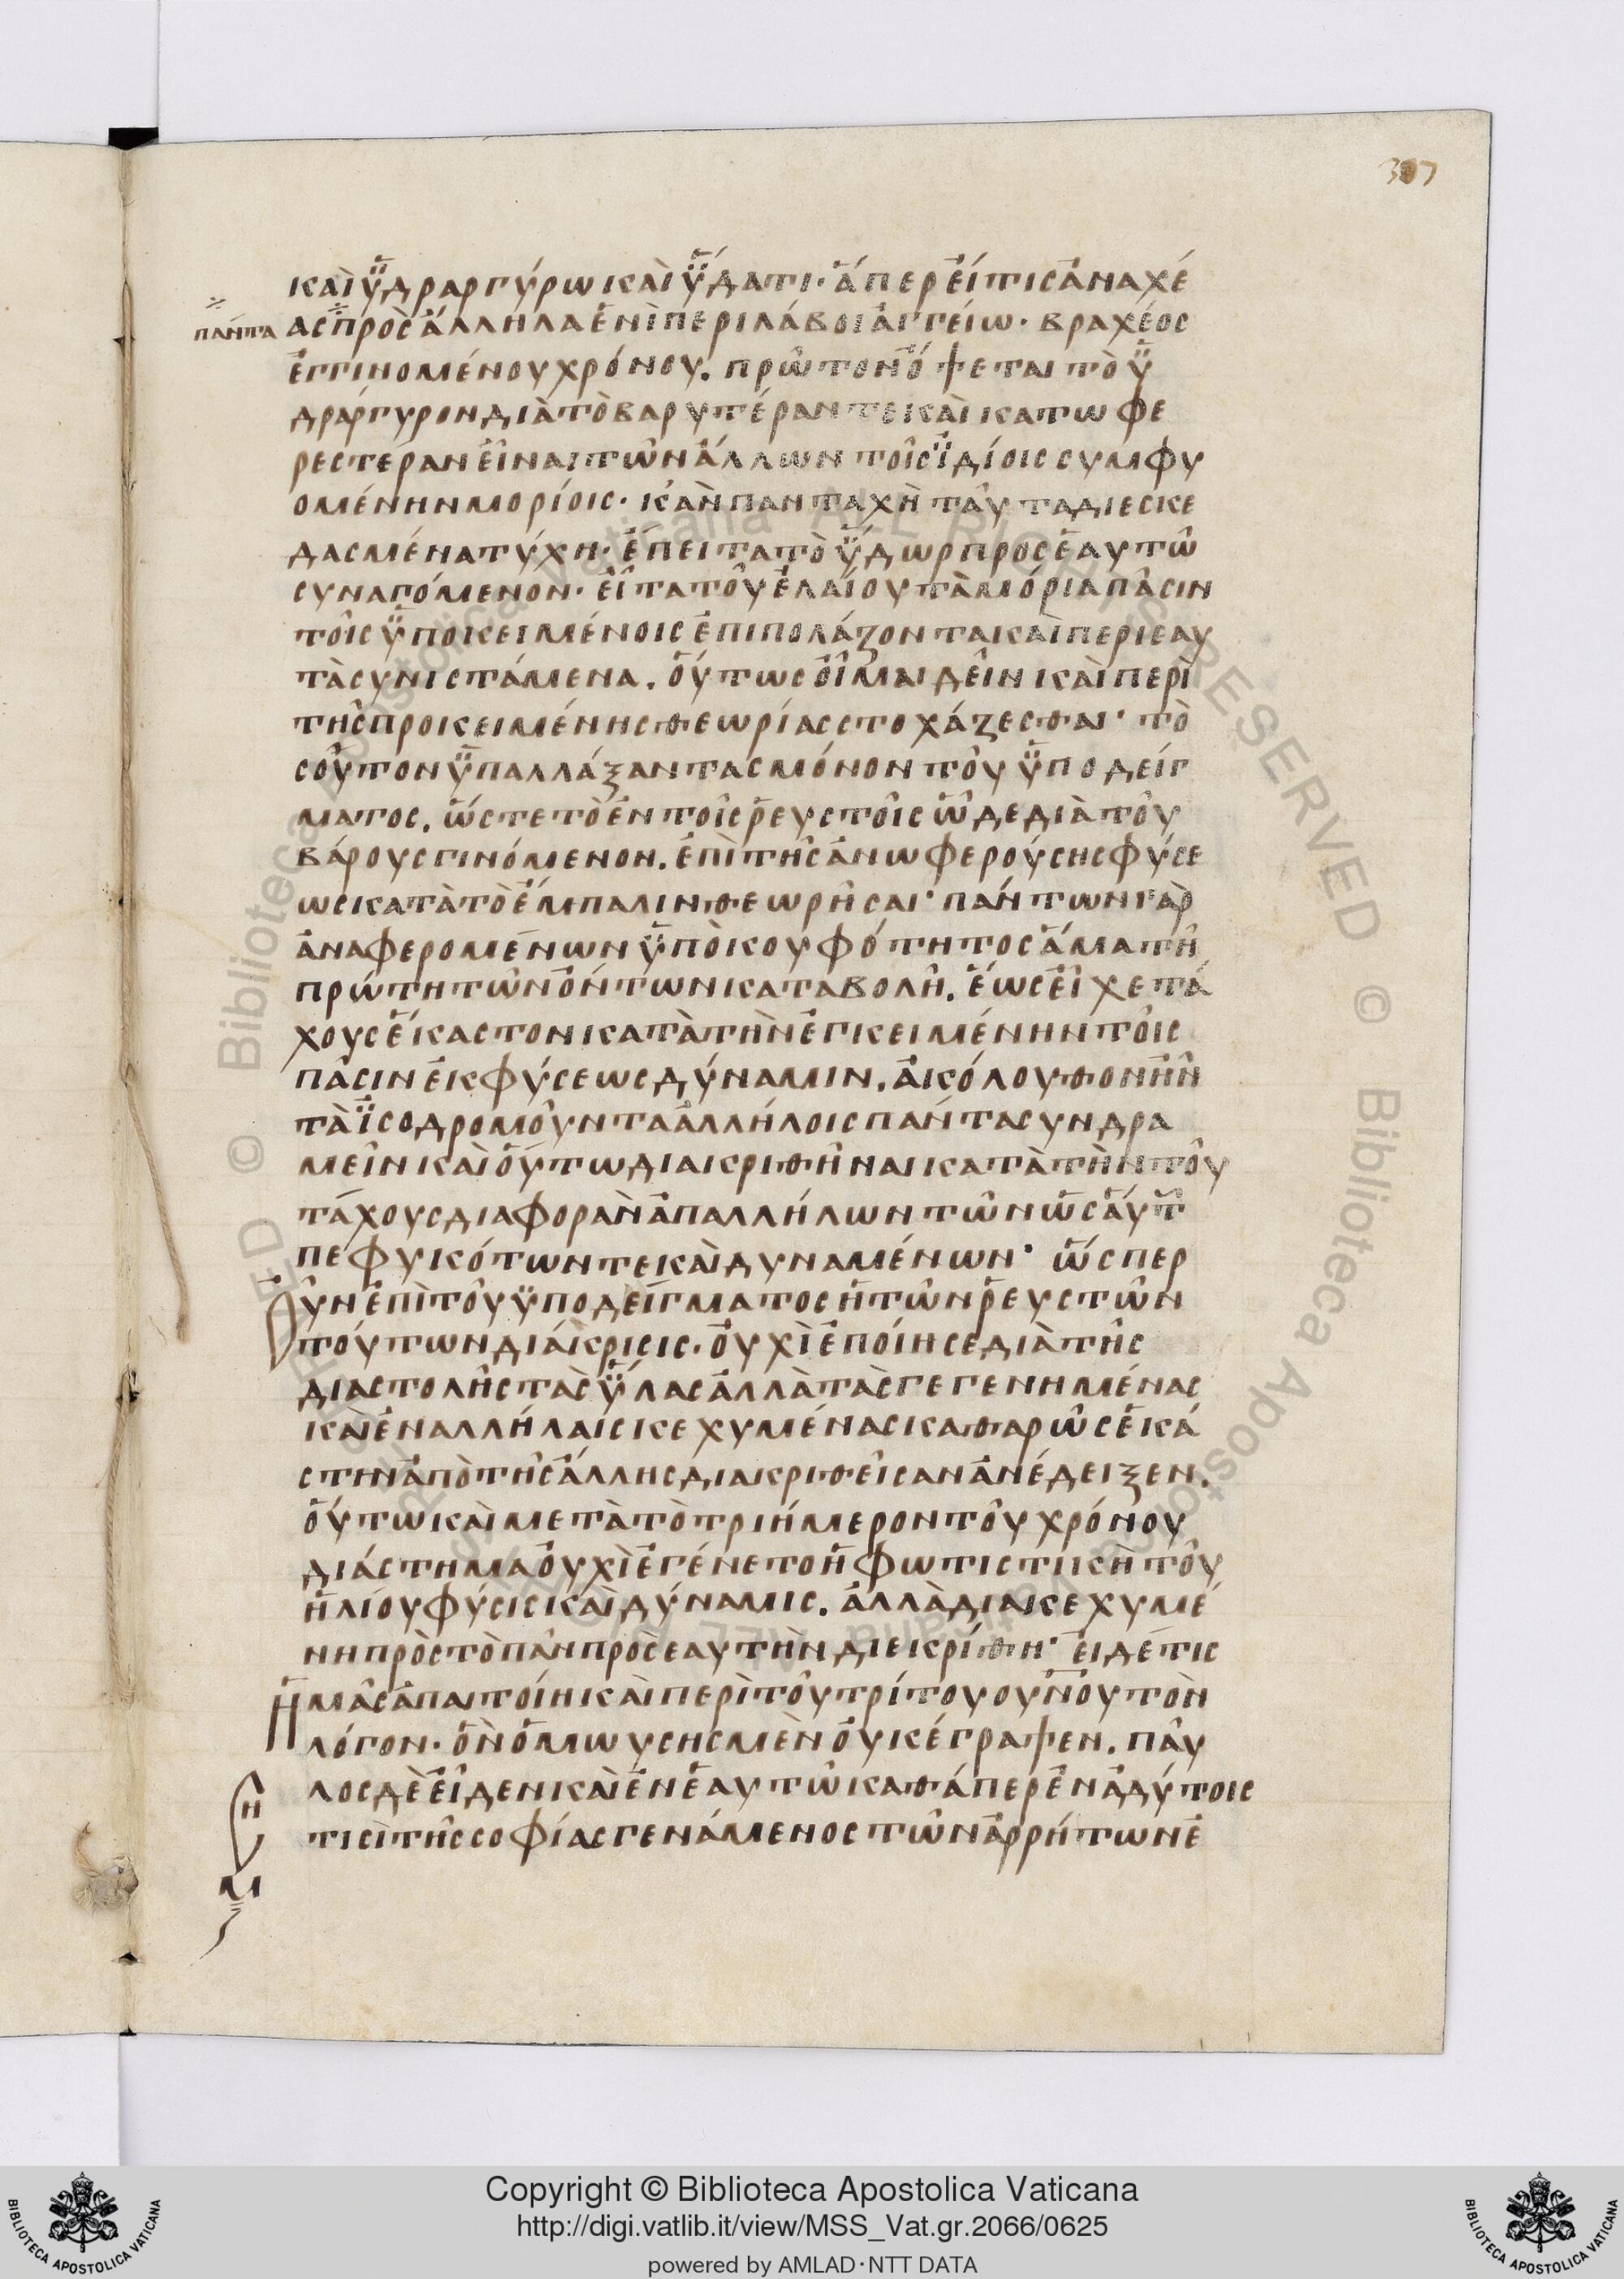 307
καὶ ὑδραργύρω καὶ ὕδατι· ἅπερ εἴ τις ἀναχέ
πάντα
ας πρὸς ἄλληλα ἑνὶ περιλάβοι ἀγγείω· βραχέος
ἐγγινομένου χρόνου. πρῶτον ὄψεται τὸ ὑ
δράργυρον διὰ τὸ βαρυτέραν τε καὶ κατωφε
ρεστέραν εἶναι τῶν ἄλλων τοῖς ἰδίοις συμφυ
ομένην μορίοις· κἂν πανταχὴ ταῦτα διεσκε
δασμένα τύχη· ἔπειτα τὸ ὕδωρ προς ἑαυτῶ
συναγόμενον· εἶτα τοῦ ἐλαίου τὰ μόρια πᾶσιν
τοῖς ὑποκειμένοις ἐπιπολάζονται καὶ περι εαυ
τὰ συνιστάμενα. οὕτως οἶμαι δεῖν καὶ περὶ
τῆς προκειμένης θεωρίας στοχάζεσθαι· τὸ
σοῦτον ὑπαλλάξαντας μόνον τοῦ ὑποδείγ
ματος. ὥστε τὸ ἐν τοῖς ῥευστοῖς ὧδε διὰ τοῦ
βάρους γινόμενον. ἐπὶ τῆς ἀνωφερούσης φύσε
ως κατὰ τὸ ἔμπαλιν θεωρῆσαι· πάντων γὰρ
ἀναφερομένων ὑπὸ κουφότητος ἅμα τῆ
πρώτη τῶν ὄντων καταβολῆ. ἕως εἶχε τά
χους ἕκαστον κατὰ τὴν ἐγκειμένην τοῖς
πᾶσιν ἐκ φύσεως δύναμιν. ἀκόλουθον ἦν
τὰ ἰσοδρομοῦντα ἀλλήλοις πάντα συνδρα
μεῖν καὶ οὕτω διακριθῆναι κατὰ τὴν τοῦ
τάχους διαφορὰν ἀπαλλήλων τῶν ὡσάυτ
πεφυκότων τε καὶ δυναμένων· ὥσπερ
οὖν ἐπὶ τοῦ ὑποδείγματος ἡ τῶν ῥευστῶν
τούτων διάκρισις· οὐχὶ ἐποίησε διὰ τῆς
διαστολῆς τὰς ὕλας ἀλλὰ τὰς γεγενημένας
καὶ ἐν αλλήλαις κεχυμένας καθαρῶς ἑκά
στην ἀπὸ τῆς ἄλλης διακριθεῖσαν ἀνέδειξεν.
οὕτω καὶ μετὰ τὸ τριήμερον τοῦ χρόνου
διάστημα οὐχὶ ἐγένετο ἡ φωτιστικὴ τοῦ
ἡλίου φύσις καὶ δύναμις. ἀλλὰ διακεχυμέ
νη πρὸς τὸ πᾶν πρὸς εαυτὴν διεκρίθη· ει δέ τις
ἡμᾶς ἀπαιτοίη καὶ περὶ τοῦ τρίτου ουνου τὸν
λόγον· ὃν ὁ μωυσης μὲν οὐκ έγραψεν. παῦ
λος δὲ εἶδεν καὶ ἐν ἑαυτῶ καθάπερ ἐν ἀδύτοις
τισὶ τῆς σοφίας γενάμενος τῶν ἀρρήτων ἐ
Copyright © Biblioteca Apostolica Vaticana
http://digi.vatlib.it/view/MSS_Vat.gr.2066/0625
powered by AMLAD·NTT DATA
BIBLIOTECA APOSTOLICA VATICANA
BIBLIOTECA APOSTOLICA VATICANA